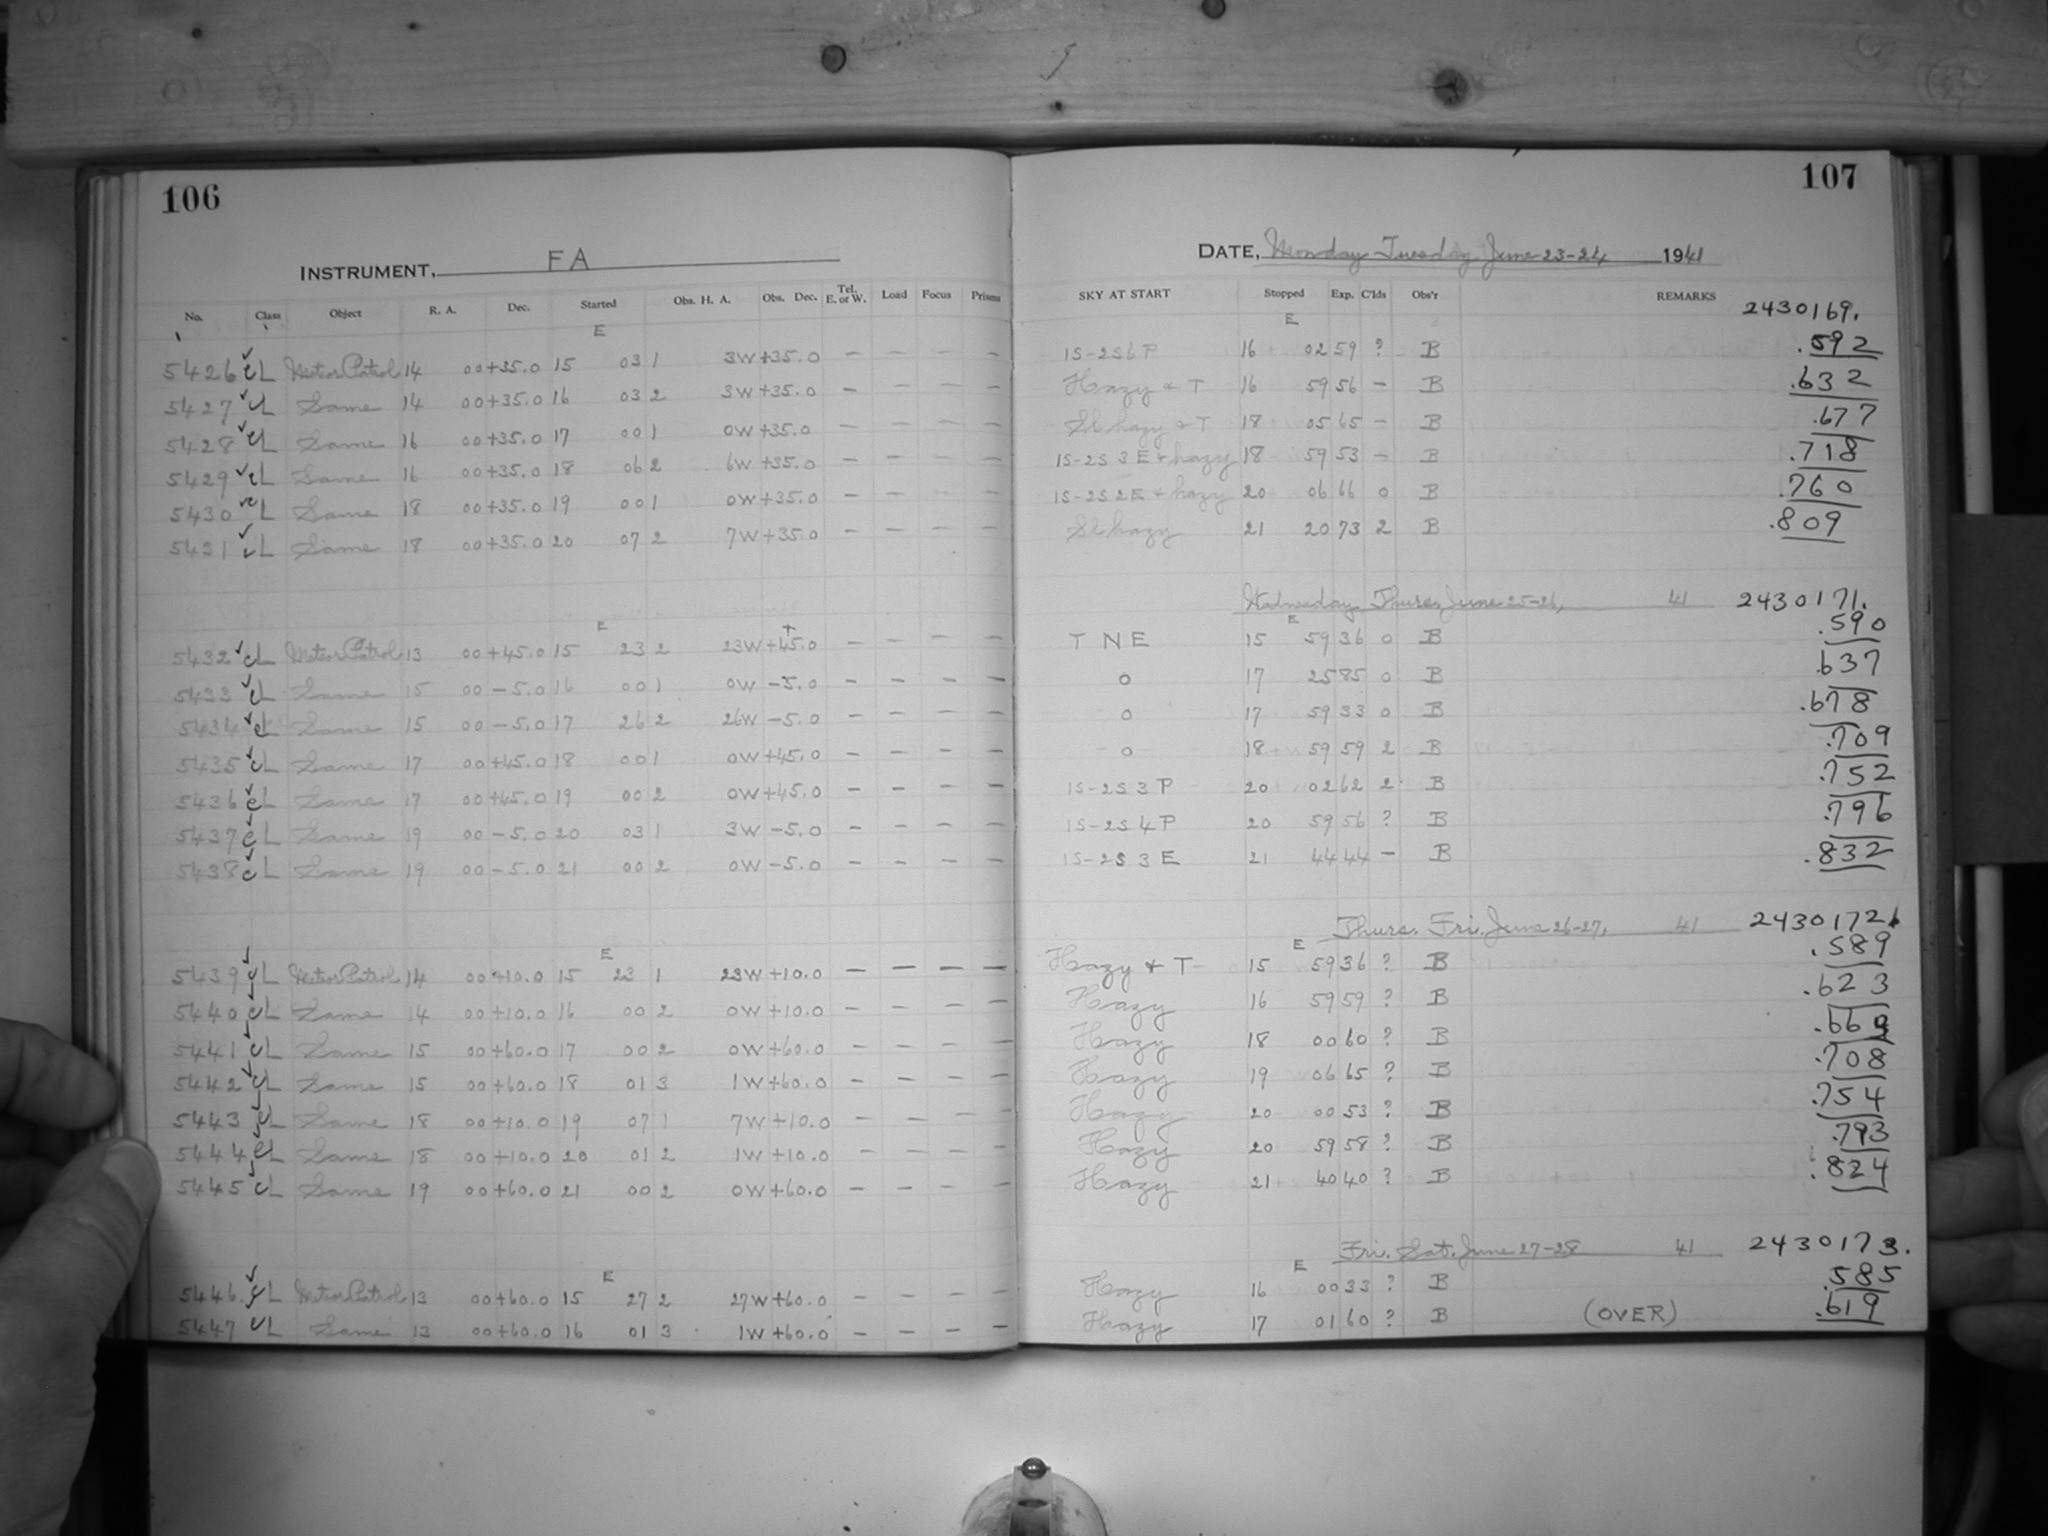 106
INSTRUMENT, FA
No. Class Object R. A. Dec. Started Obs. H. A. Obs. Dec. Tel. E. or W. Load Focus Prisms
E
5426 cL Meteor Patrol 14 00 +35.0 15 03 1 3W +35.0 — — — —
5427 cL Same 14 00 +35.0 16 03 2 3W +35.0 — — — —
5428 cL Same 16 00 +35.0 17 00 1 0W +35.0 — — — —
5429 cL Same 16 00 +35.0 18 06 2 6W +35.0 — — — —
5430 cL Same 18 00 +35.0 19 00 1 0W +35.0 — — — —
5431 cL Same 18 00 +35.0 20 07 2 7W +35.0 — — — —
E
5432 cL Meteor Patrol 13 00 +45.0 15 23 2 23W +45.0 — — — —
5433 cL Same 15 00 -5.0 16 00 1 0W -5.0 — — — —
5434 cL Same 15 00 -5.0 17 26 2 26W -5.0 — — — —
5435 cL Same 17 00 +45.0 18 00 1 0W +45.0 — — — —
5436 cL Same 17 00 +45.0 19 00 2 0W +45.0 — — — —
5437 cL Same 19 00 -5.0 20 03 1 3W -5.0 — — — —
5438 cL Same 19 00 -5.0 21 00 2 0W -5.0 — — — —
E
5439 cL Meteor Patrol 14 00 +10.0 15 23 1 23W +10.0 — — — —
5440 cL Same 14 00 +10.0 16 00 2 0W +10.0 — — — —
5441 cL Same 15 00 +60.0 17 00 2 0W +60.0 — — — —
5442 cL Same 15 00 +60.0 18 01 3 1W +60.0 — — — —
5443 cL Same 18 00 +10.0 19 07 1 7W +10.0 — — — —
5444 cL Same 18 00 +10.0 20 01 2 1W +10.0 — — — —
5445 cL Same 19 00 +60.0 21 00 2 0W +60.0 — — — —
E
5446 cL Meteor Patrol 13 00 +60.0 15 27 2 27W +60.0 — — — —
5447 cL Same 13 00 +60.0 16 01 3 1W +60.0 — — — —
107
DATE, Monday Tuesday June 23-24 1941
SKY AT START Stopped Exp. C'lds Obs'r REMARKS 2430169.
E
1S-2S6P 16 02 59 ? B .592
Hazy & T 16 59 56 — B .632
Sl hazy & T 18 05 65 — B .677
1S-2S 3E & hazy 18 59 53 — B .718
1S-2S 2E & hazy 20 06 66 0 B .760
Sl hazy 21 20 73 2 B .809
Wednesday Thurs. June 25-26, 41 2430171.
E
T N E 15 59 36 0 B .590
0 17 25 85 0 B .637
0 17 59 33 0 B .678
0 18 59 59 2 B .709
1S-2S 3P 20 02 62 2 B .752
1S-2S 4P 20 59 56 ? B .796
1S-2S 3E 21 44 44 — B .832
Thurs. Fri. June 26-27, 41 2430172.
E
Hazy & T 15 59 36 ? B .589
Hazy 16 59 59 ? B .623
Hazy 18 00 60 ? B .669
Hazy 19 06 65 ? B .708
Hazy 20 00 53 ? B .754
Hazy 20 59 58 ? B .793
Hazy 21 40 40 ? B .824
Fri. Sat. June 27-28 41 2430173.
E
Hazy 16 00 33 ? B .585
Hazy 17 01 60 ? B (OVER) .619